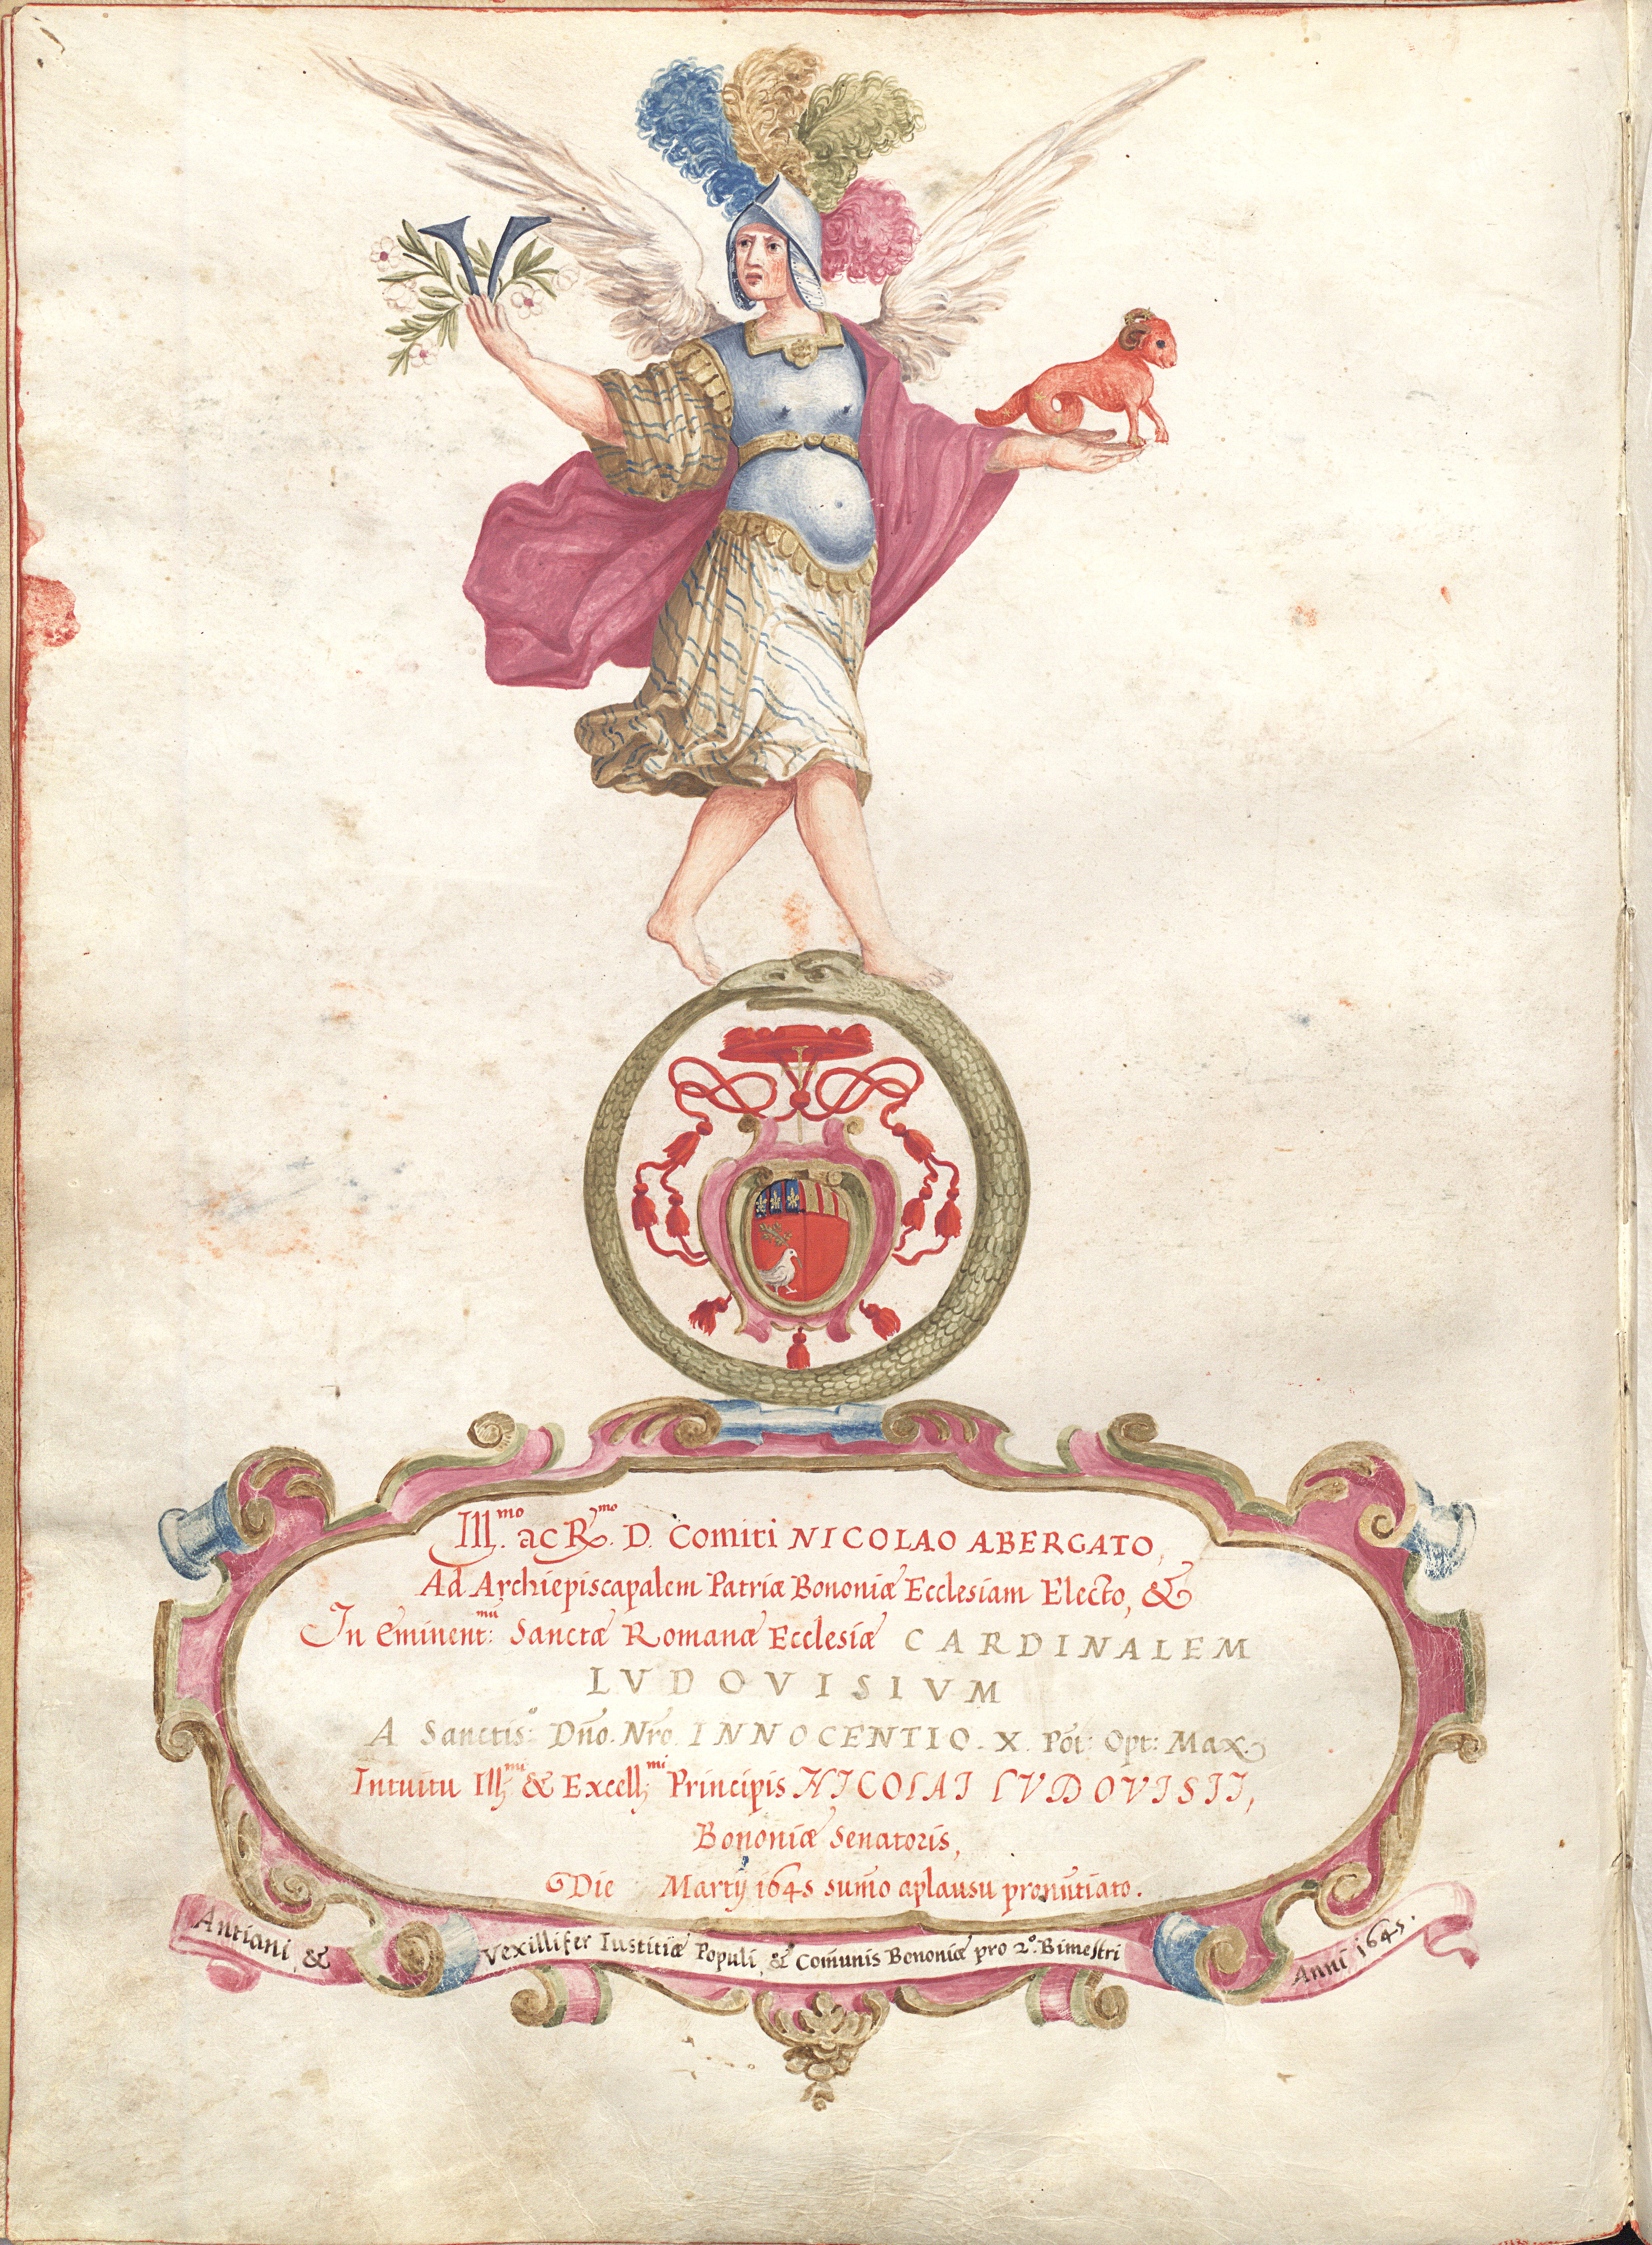 V
Ill.mo ac R.mo D. Comiti NICOLAO ABERGATO,
Ad Archiepiscapalem Patriæ Bononiæ Ecclesiam Electo, &
In Eminent:mũ Sanctæ Romanæ Ecclesiæ CARDINALEM
LVDOVISIVM
A Sanctis:o Dño. Nrõ. INNOCENTIO. X. Põt: Opt: Max.
Intuitu Ill;mi & Excell;mi Principis NICOLAI LVDOVISII,
Bononiæ Senatoris,
Die Martij 1645 sum̃o aplausu pronũtiato.
Antiani, & Vexillifer Iustitiæ Populi, & Com̃unis Bononiæ pro 2.o Bimestri Anni 1645.